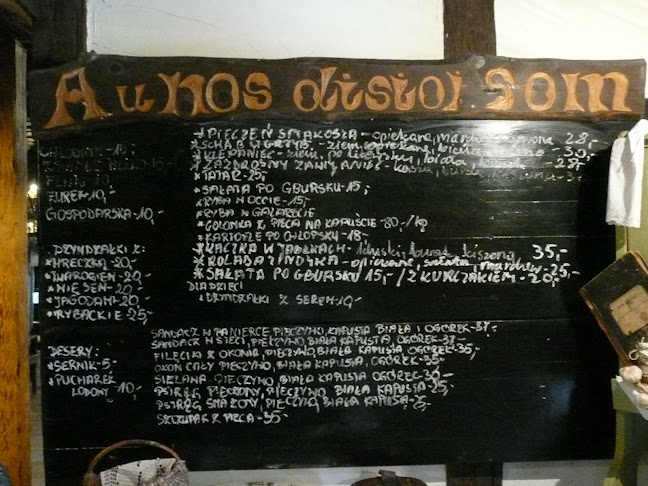 A u nos dzisioj SOM
CHŁODNIK-15,-
FLAKI
ŻUREK-10,-
GOSPODARSKA-10,-
DZYNDZAŁKI Z:
*HRECZKĄ-20,-
*TWAROGIEM-20,-
*MIĘSEM-20,-
*JAGODAMI-20,-
*RYBACKIE-25,-
DESERY:
*SERNIK-5,-
*PUCHAREK
LODOWY 10,-
*PIECZEŃ SMAKOSZA-opiekane, 28,-
*SCHAB W GRZYB.-ziem. 30,-
*KLEPANIEC-ziem. 28,-
*ZAZDROSNY ZAWIJANIEC-kasza,
*TATAR-25,-
*SAŁATA PO GBURSKU-15,-
*RYBA W OCCIE-15,-
*RYBA W GALARECIE
*GOLONKA Z PIECA NA KAPUŚCIE-80,-/kg
*KARTOFLE PO CHŁOPSKU-18-
*KACZKA W JABŁKACH- kluski, burak, kiszona 35,-
*ROLADA Z INDYKA-opiekane, sałata, marchew-25,-
*SAŁATA PO GBURSKU 15,-/Z KURCZAKIEM-20,-
DLA DZIECI
*DZYNDZAŁKI Z SEREM-10,-
SANDACZ W PANIERCE, PIECZYWO, KAPUSTA BIAŁA I OGÓREK-37,-
SANDACZ W SIECI, PIECZYWO, BIAŁA KAPUSTA, OGÓREK-37,-
FILECIKI Z OKONIA, PIECZYWO, BIAŁA KAPUSTA OGÓREK-35,-
OKOŃ CAŁY PIECZYWO, BIAŁA KAPUSTA, OGÓREK-35,-
SIELAWA PIECZYWO, BIAŁA KAPUSTA OGÓREK-30,-
PSTRĄG PIECZONY, PIECZYWO, BIAŁA KAPUSTA-25,-
PSTRĄG SMAŻONY, PIECZYWO, BIAŁA KAPUSTA-25,-
SZCZUPAK Z PIECA-35-